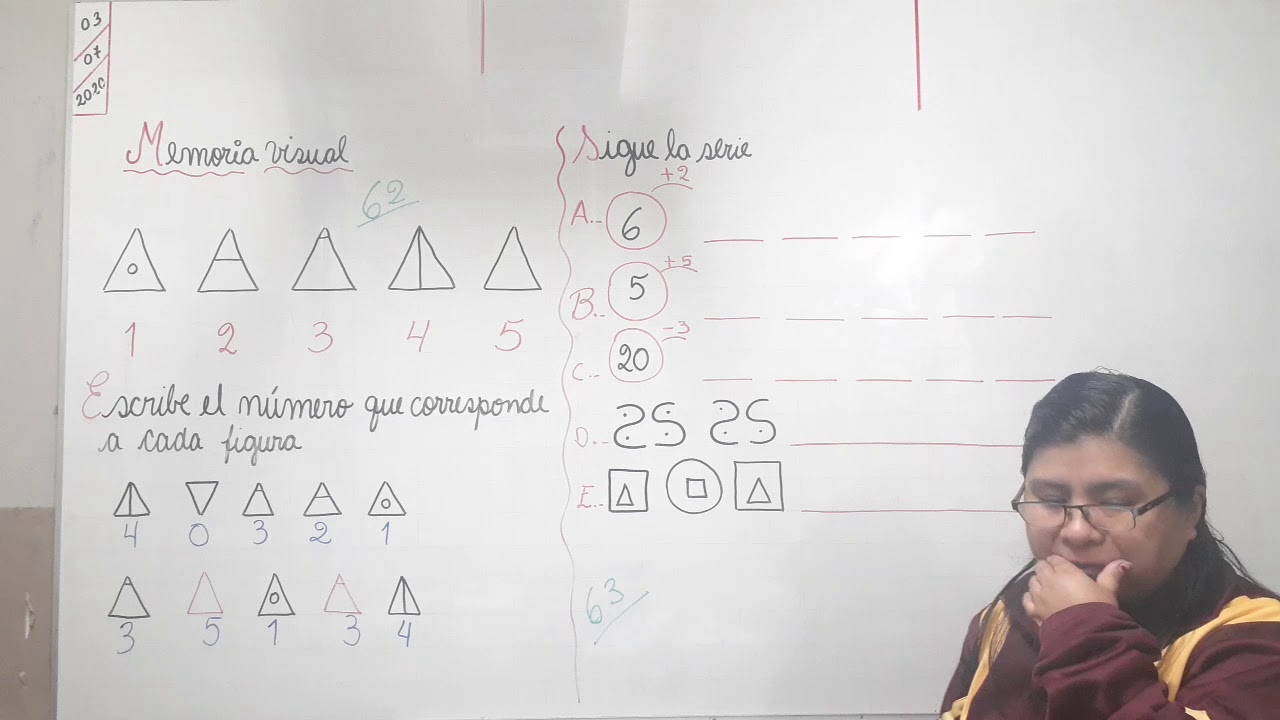 03
07
2020
Memoria visual
62
1 2 3 4 5
Escribe el número que corresponde
a cada figura
4 0 3 2 1
3 5 1 3 4
Sigue la serie
A.- 6 +2
B.- 5 +5
C.- 20 -3
D.-
E.-
63